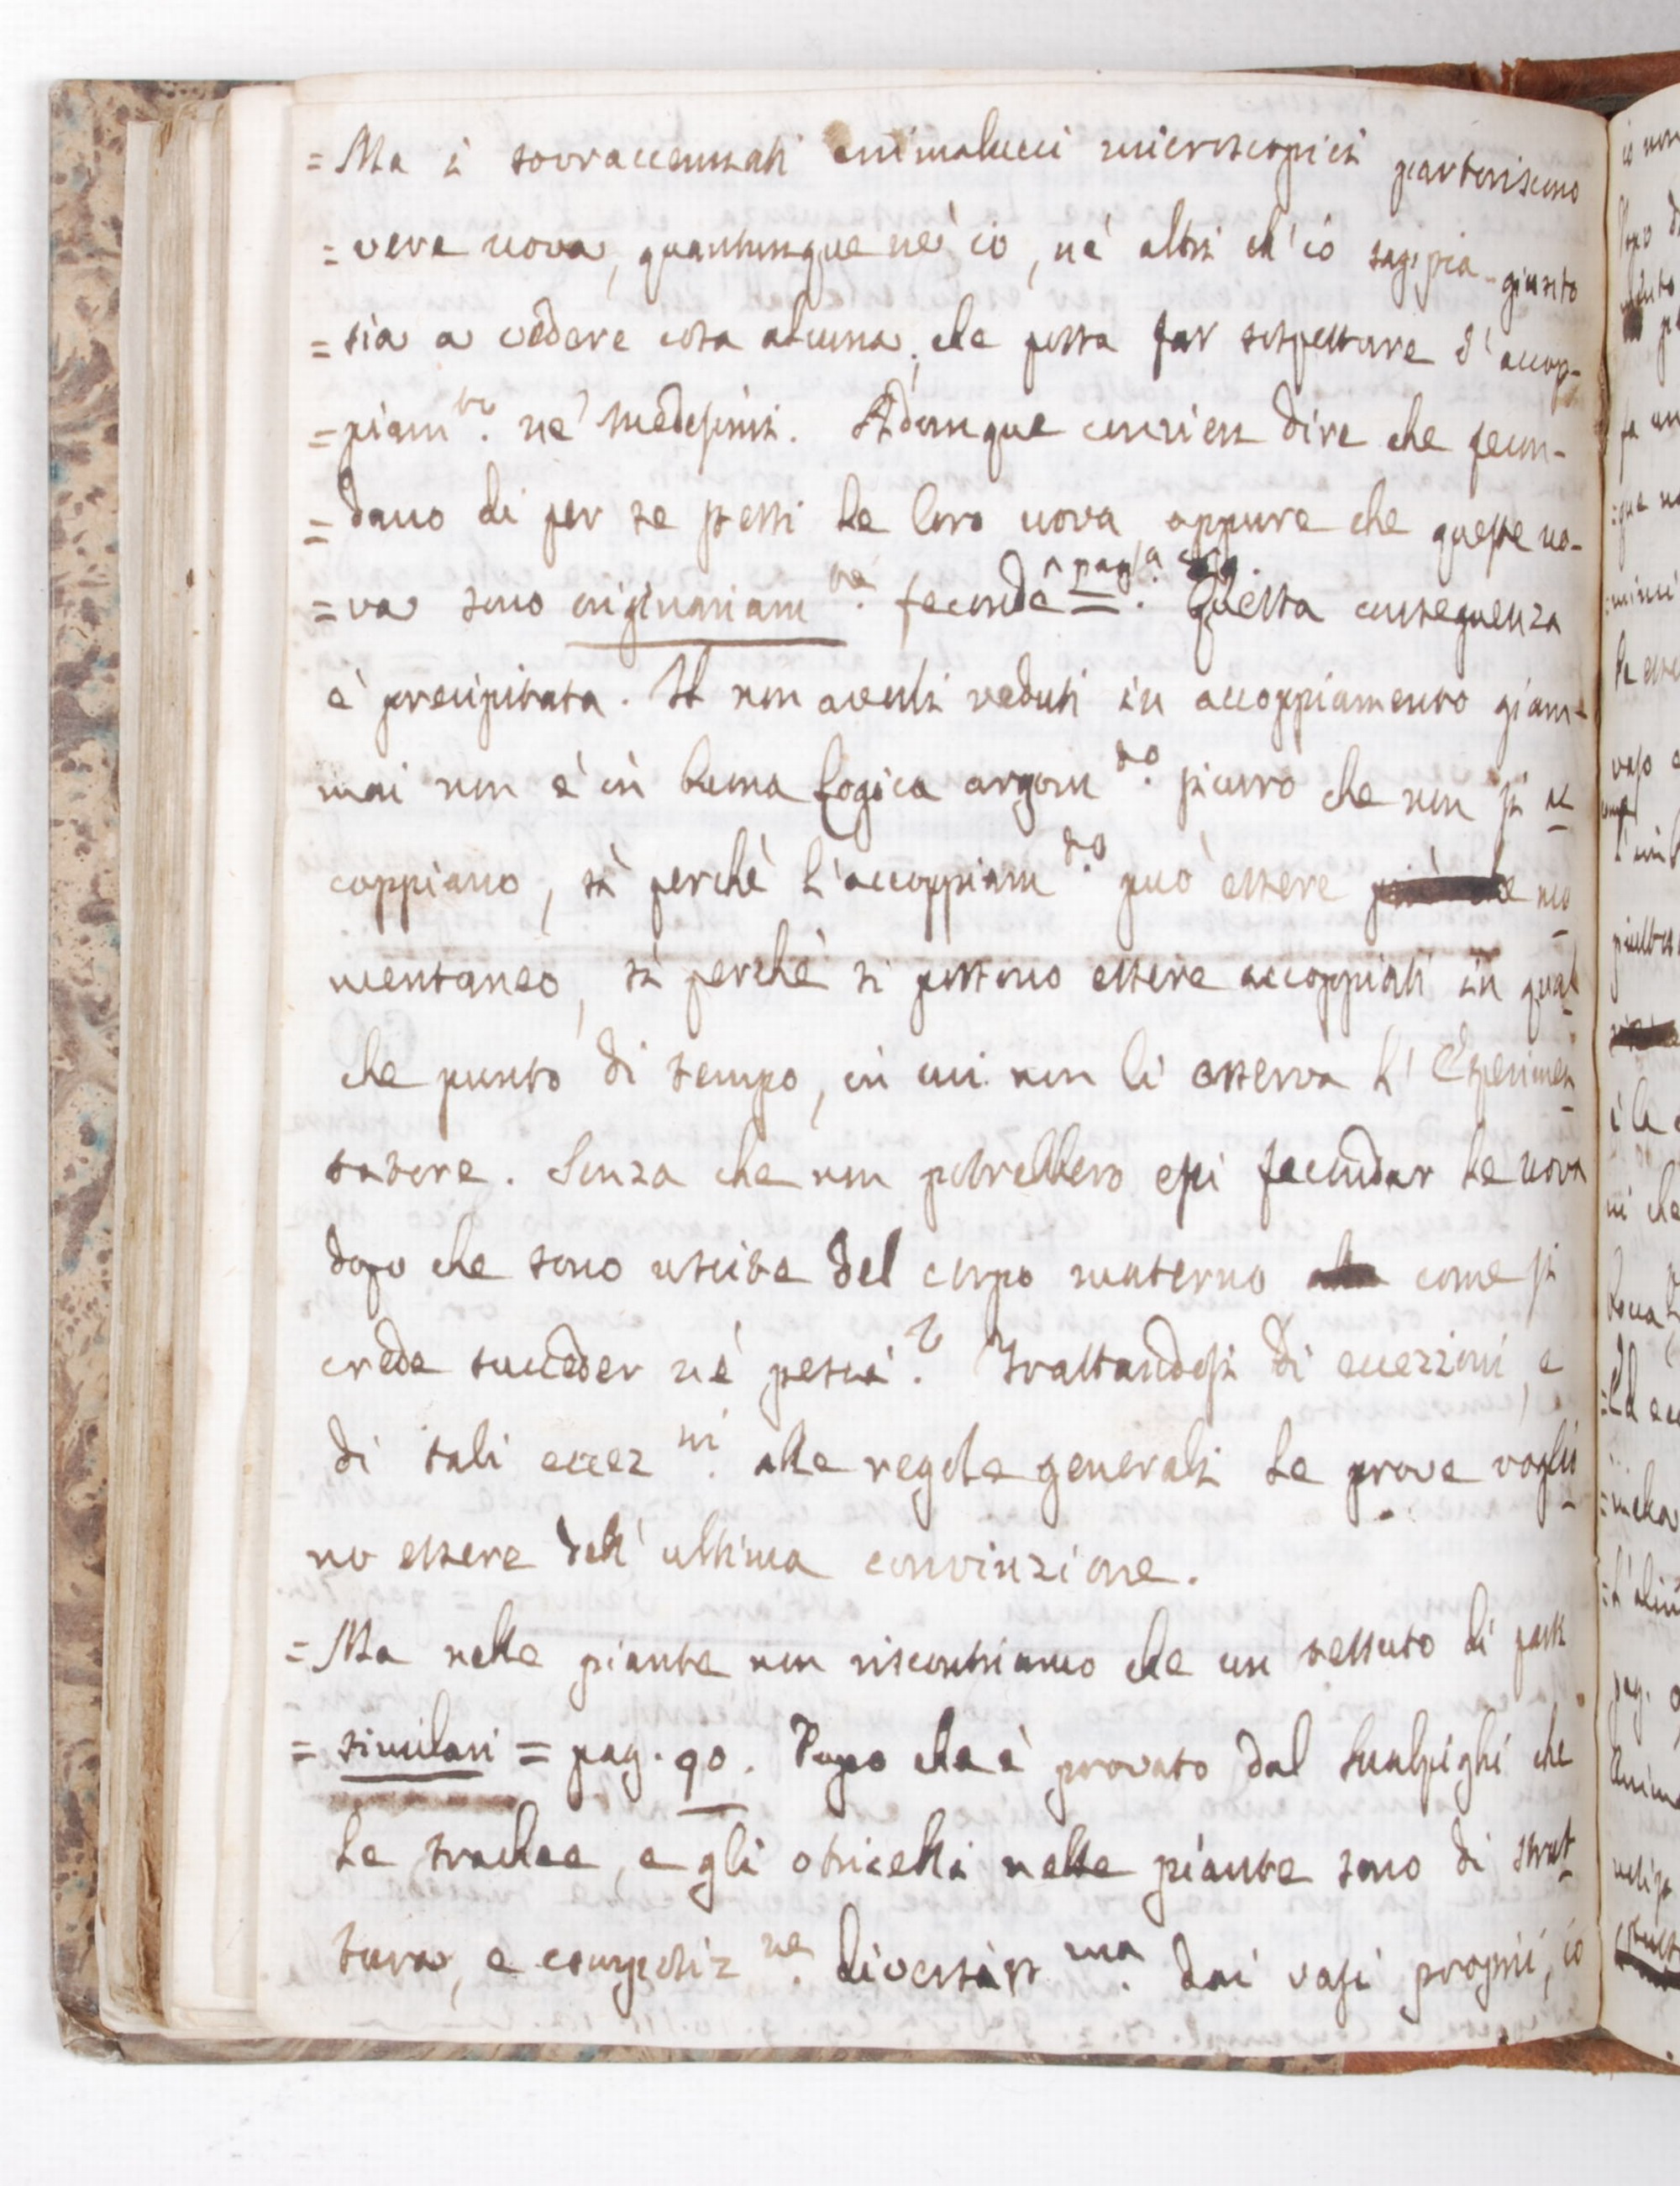 = Ma i sovraccennati animalucci microscopici partoriscono
= vere uova, quantunque nè io, nè altri ch'io sappia giunto
= sia a vedere cosa alcuna, che possa far sospettare d'accop-
= piam.to ne' medesimi. Adunque convien dire che fecon-
= dano di per se stessi le loro uova oppure che queste uo-
pag.a
= va sono originariam.te feconde =. Questa conseguenza
è precipitata. Il non averli veduti in accoppiamento giam-
mai non è in buona Logica argom.to sicuro che non si ac
coppiano, sì perchè l'accoppiam.to può essere mo
mentaneo, sì perchè si possono essere accoppiati in qual
che punto di tempo, in cui non li osserva l'Esperimen
tatore. Senza che non potrebbero essi fecondar le uova
dopo che sono uscite del corpo materno come si
crede succeder ne' pesci? Trattandosi di eccezioni, e
di tali eccez.ni alle regole generali le prove voglio
no essere dell'ultima convinzione.
= Ma nelle piante non riscontriamo che un tessuto di parti
= similari = pag. 90. Dopo che è provato dal Malpighi che
le trachee, e gli otricelli nelle piante sono di strut
tura, e composiz.ne diversiss.ma dai vasi proprii, io